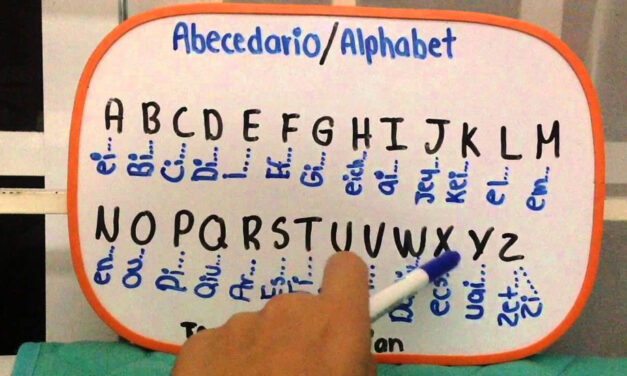 Abecedario/Alphabet
A B C D E F G H I J K L M
ei... Bi... Ci... Di... I... Gi... eich... ai... Jey... Kei... el... em...
N O P Q R S T U V W X Y Z
en... ou... pi... qiu... Ar... Es... ecs... uai... zet... zi...